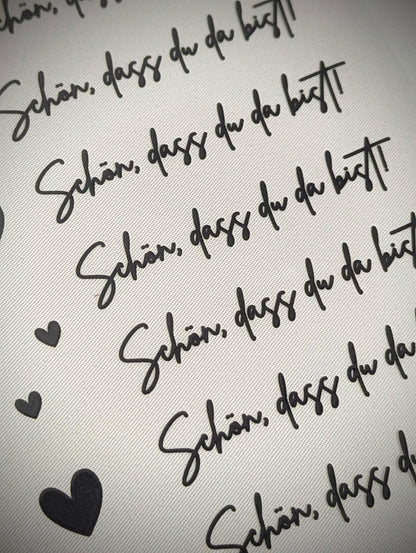 chön,
Schön, dass du da bist!
Schön, dass du da bist!
Schön, dass du da bist!
Schön, dass du da bist
Schön, dass du da
Schön, dass du